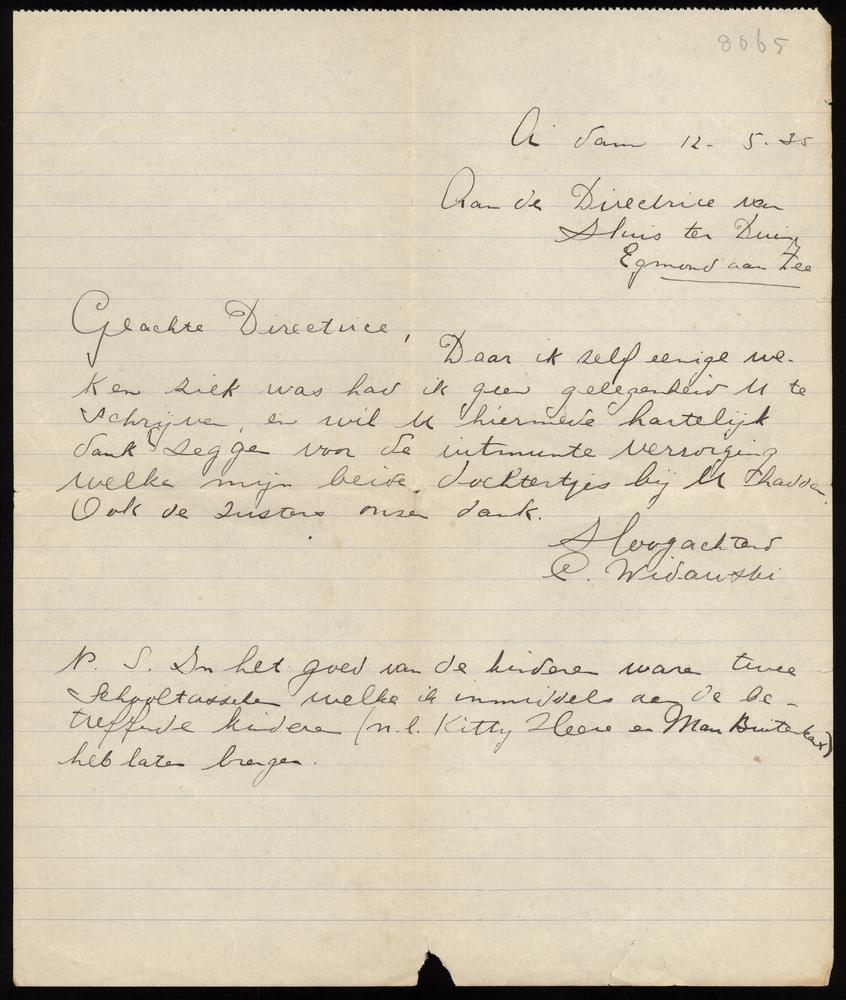 8065
A dam 12 - 5 - 35
Aan de Directrice van
Huis ter Duin
Egmond aan Zee
Geachte Directrice,
Daar ik zelf eenige we-
ken ziek was had ik geen gelegenheid U te
schrijven, en wil U hiermede hartelijk
dank zeggen voor de uitmunte verzorging
welke mijn beide dochtertjes bij U hadden.
Ook de zusters onzen dank.
Hoogachtend
C. Widawski
N. S. In het goed van de kinderen waren twee
Schooltasschen welke ik inmiddels aan de be-
treffende kinderen (n.l. Kitty Heere en Max
heb laten brengen.